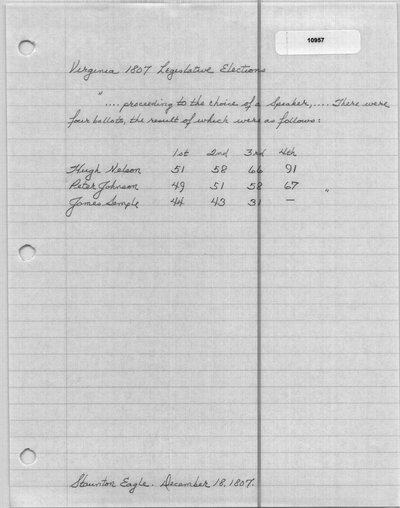 10957
Virginia 1807 Legislative Elections
".... proceeding to the choice of a Speaker,.... There were
four ballots, the result of which were as follows:
1st 2nd 3rd 4th
Hugh Nelson 51 58 66 91
Peter Johnson 49 51 58 67 "
James Semple 44 43 31 —
Staunton Eagle. December 18, 1807.